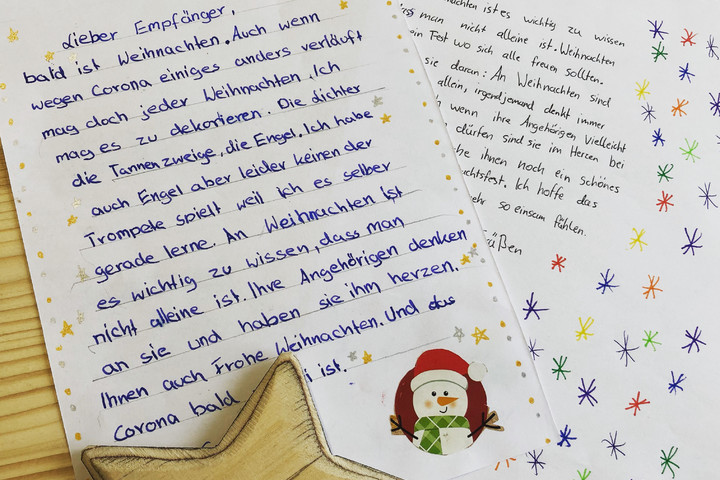 Lieber Empfänger,
bald ist Weihnachten. Auch wenn
wegen Corona einiges anders verläuft
mag doch jeder Weihnachten. Ich
mag es zu dekorieren. Die dichter
die Tannenzweige, die Engel. Ich habe
auch Engel aber leider keinen der
Trompete spielt weil ich es selber
gerade lerne. An Weihnachten ist
es wichtig zu wissen, dass man
nicht alleine ist. Ihre Angehörigen denken
an sie und haben sie ihm herzen.
Ihnen auch Frohe Weihnachten. Und das
Corona bald i ist.
ist es wichtig zu wissen
man nicht alleine ist. Weihnachten
ein Fest wo sich alle freuen sollten.
sie daran: An Weihnachten sind
allein, irgendjemand denkt immer
wenn ihre Angehörigen Vielleicht
dürfen sind sie im Herzen bei
he ihnen noch ein schönes
achtsfest. Ich hoffe das
ehr so einsam fühlen.
üßen